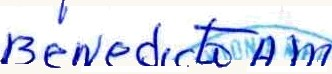 Benedicto Am